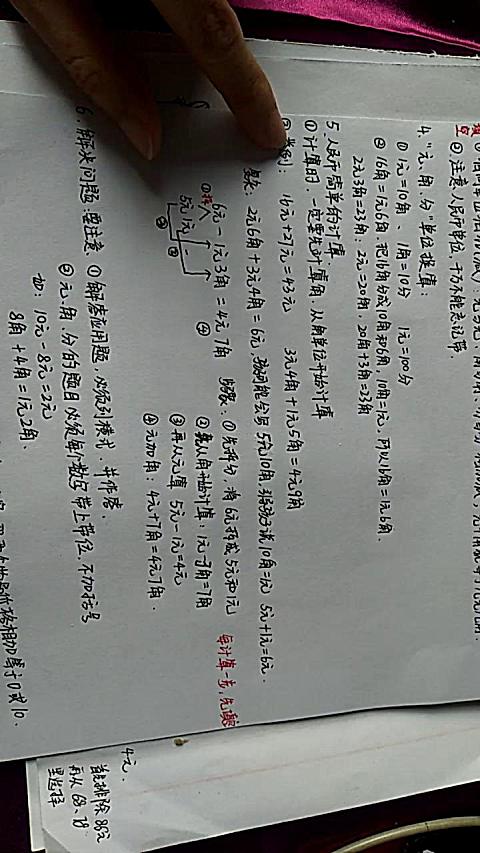 ②注意人民币单位,千万不能忘记带
4."元、角、分"单位换算:
①1元=10角、1角=10分 1元=100分
②16角=1元6角,把16角分成10角和6角,10角=1元,所以16角=1元6角.
2元3角=23角:2元=20角,20角+3角=23角
5.人民币简单的计算
①计算时,一定要先计算角,从角单位开始计算
16元+27元=43元 3元4角+1元5角=4元9角
2元6角+3元4角=6元 5元10角 10角=1元 5元+1元=6元.
6元-1元3角=4元7角 步骤:①先拆分,将6元拆成5元和1元
5元 1元
②先从角开始计算:1元-3角=7角
③再从元算 5元-1元=4元
④元加角:4元+7角=4元7角.
每计算一步,先
6.解决问题:要注意 ①解答应用题,必须列横式,并作答.
②元、角、分的题目必须每个数字带上单位,不加括号
如:10元-8元=2元
8角+4角=1元2角.
价格相加等于0或10.
4元.
首先排除
再从
里选择